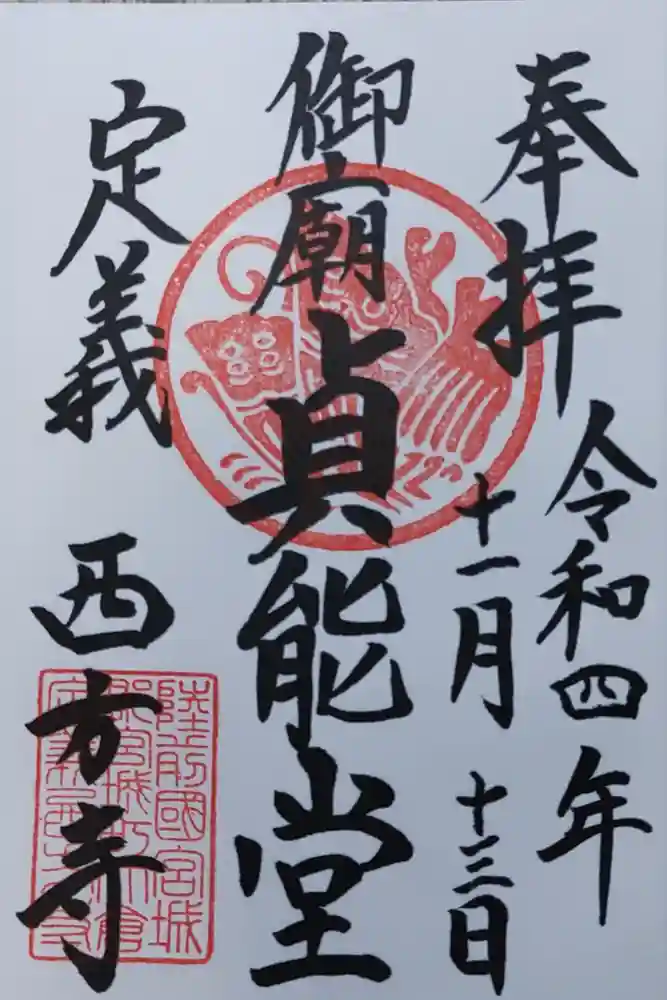 奉拝
令和四年
十一月十三日
御廟
貞能堂
定義
西方寺
陸前國宮城